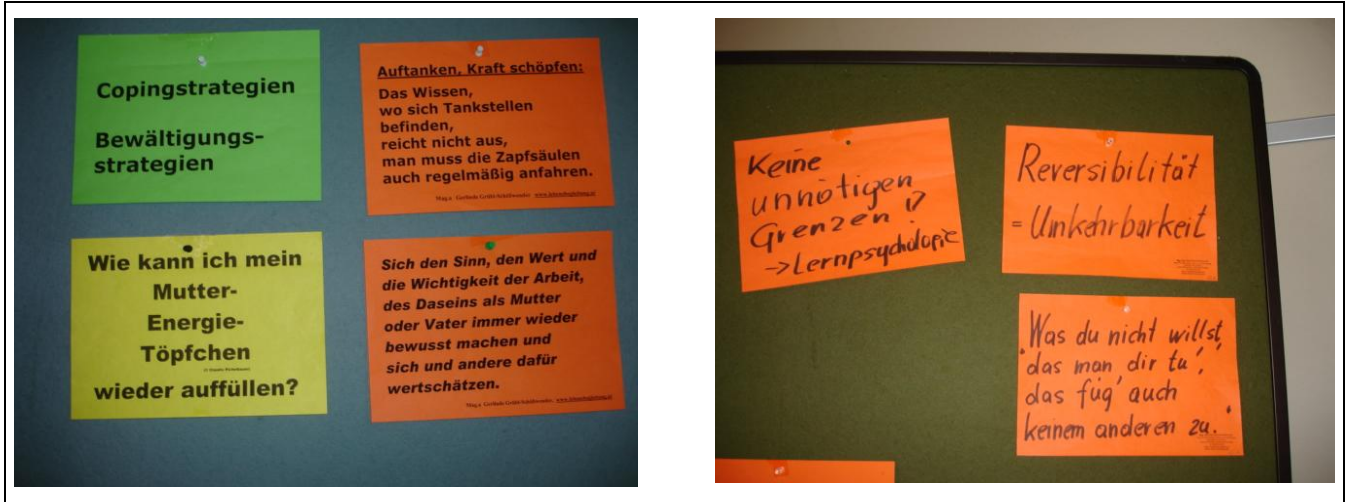 Copingstrategien
Bewältigungs-
strategien
Auftanken, Kraft schöpfen:
Das Wissen,
wo sich Tankstellen
befinden,
reicht nicht aus,
man muss die Zapfsäulen
auch regelmäßig anfahren.
Wie kann ich mein
Mutter-
Energie-
Töpfchen
wieder auffüllen?
Sich den Sinn, den Wert und
die Wichtigkeit der Arbeit,
des Daseins als Mutter
oder Vater immer wieder
bewusst machen und
sich und andere dafür
wertschätzen.
Keine
unnötigen
Grenzen
->Lernpsychologie
Reversibilität
= Umkehrbarkeit
"Was du nicht willst,
das man dir tu',
das füg auch
keinem anderen zu."